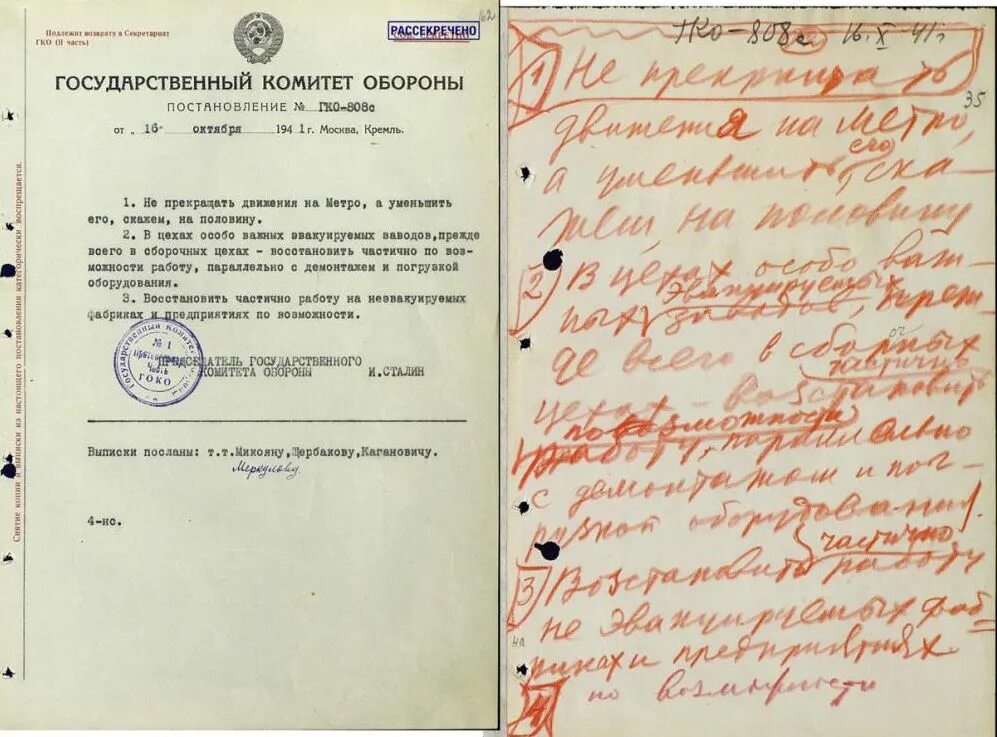 Подлежит возврату в Секретариат
ГКО (II часть)
62
РАССЕКРЕЧЕНО
ГОСУДАРСТВЕННЫЙ КОМИТЕТ ОБОРОНЫ
ПОСТАНОВЛЕНИЕ № ГКО-808с
от „16" октября 1941 г. Москва, Кремль.
1. Не прекращать движения на Метро, а уменьшить
его, скажем, на половину.
2. В цехах особо важных эвакуируемых заводов, прежде
всего в сборочных цехах - восстановить частично по воз-
можности работу, параллельно с демонтажем и погрузкой
оборудования.
3. Восстановить частично работу на неэвакуируемых
фабриках и предприятиях по возможности.
ПРЕДСЕДАТЕЛЬ ГОСУДАРСТВЕННОГО
КОМИТЕТА ОБОРОНЫ И.СТАЛИН
Государственный Комитет
№ 1
Протокольная
часть
ГОКО
Выписки посланы: т.т.Микояну, Щербакову, Кагановичу.
Меркулову.
4-нс.
Снятие копий и выписки из настоящего постановления категорически воспрещается.
ГКО-808с 16.X-41г
35
1) Не прекращать
движения на Метро,
его
а уменьшить, ска-
жем, на половину
2) В цехах особо важ-
эвакуируемых
ных заводов, преж
оч
де всего в сборных
частично
цехах - восстановить
по возможности
работу, параллельно
с демонтажом и пог-
рузкой оборудования.
частично
3) Восстановить работу
не эвакуируемых фаб
риках и предприятиях
по возможности
4